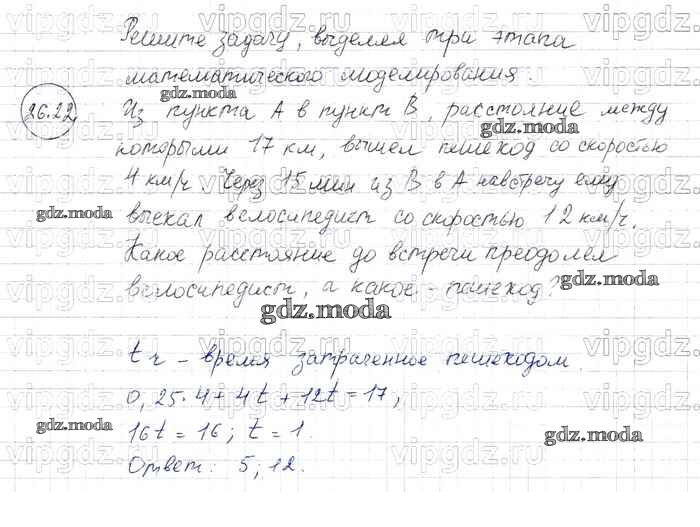 Решите задачу, выделяя три этапа
математического моделирования.
26.22
Из пункта А в пункт В, расстояние между
которыми 17 км, вышел пешеход со скоростью
4 км/ч. Через 15 мин из В в А навстречу ему
выехал велосипедист со скоростью 12 км/ч.
Какое расстояние до встречи преодолел
велосипедист, а какое - пешеход?
t ч - время затраченное пешеходом.
0,25·4+4t+12t=17,
16t=16; t=1.
Ответ: 5; 12.
gdz.moda
gdz.moda
gdz.moda
gdz.moda
gdz.moda
gdz.moda
gdz.moda
vipgdz.ru